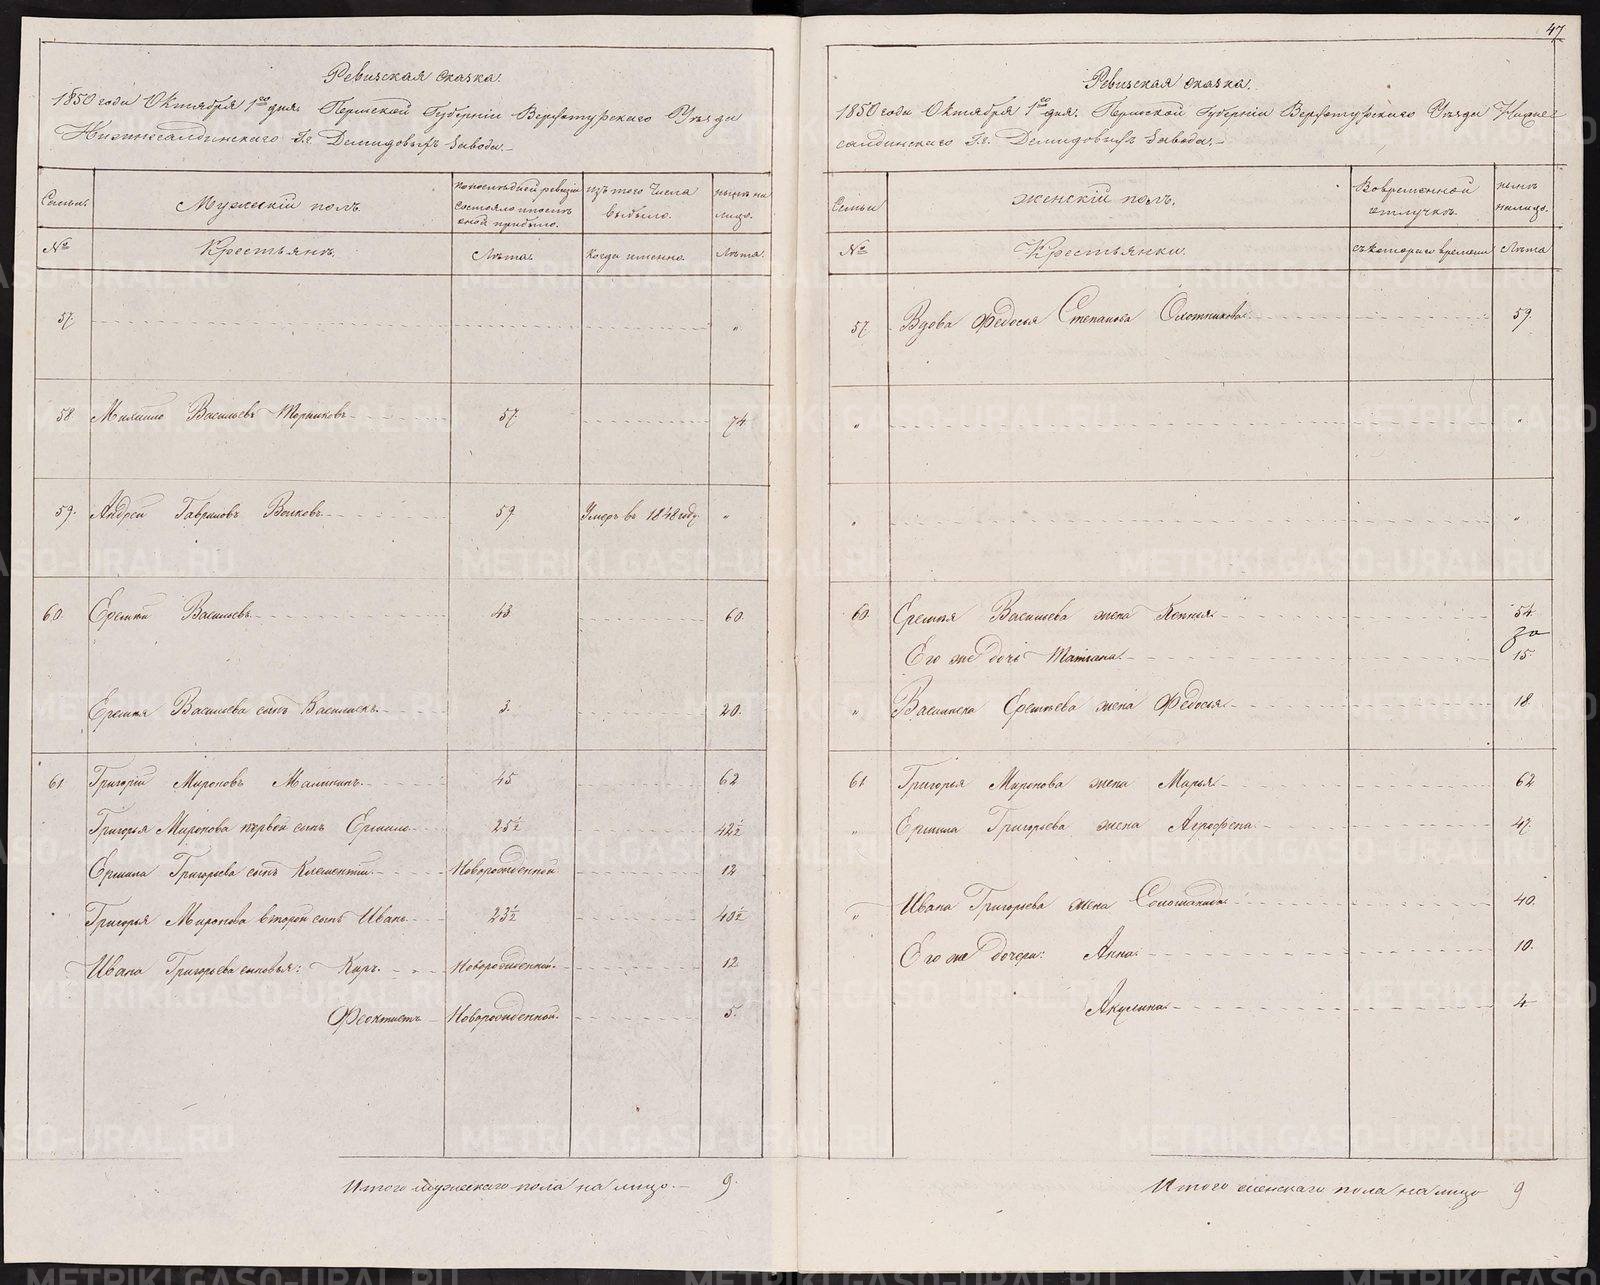 Ревизская сказка.
1850 года Октября 1го дня. Пермской Губернiи Верхотурскаго Уѣзда
Нижнесалдинскаго Г.г. Демидовыхъ Завода.
Семьи.
Мужескiй полъ.
По последней ревизiи
состояло и после
оной прибыло.
изъ того числа
выбыло.
ныне на
лицо.
№
Крестьяне.
Лѣта.
Когда именно.
Лѣта.
57. "
58. Михайло Васильевъ 57. 74
59. Андрей Гавриловъ Волковъ 59. Умеръ въ 1848 году. "
60. Еремѣй Васильевъ 43. 60.
Еремѣя Васильева сынъ Василискъ. 3. 20.
61. Григорiй Мироновъ Малыгинъ. 45 62
Григорья Миронова первой сынъ Ермило 25½ 42½
Ермила Григорьева сынъ Клементiй. Новорожденной 12
Григорья Миронова второй сынъ Иванъ 23½ 40½
Ивана Григорьева сыновья: Киръ. Новорожденной. 12
Феоктистъ Новорожденной. 5.
Итого мужескаго пола на лицо. 9.
47
Ревизская сказка.
1850 года Октября 1го дня. Пермской Губернiи Верхотурскаго Уѣзда Нижне-
салдинскаго Г.г. Демидовыхъ Завода.
Семьи
Женскiй полъ.
Вовременной
отлучке.
ныне
налицо.
№
Крестьянки.
съ котораго времени
Лѣта
57 Вдова Федосья Степанова Охотникова. 59.
" "
" "
60. Еремѣя Васильева жена Ксенья. 54.
Его же дочь Татiана. 15.
" Василиска Еремѣева жена Федосья. 18.
61 Григорья Миронова жена Марья. 62
" Ермила Григорьева жена Агрофена. 47.
" Ивана Григорьева жена Соломанида. 40.
Его же дочери: Анна. 10.
Акулина. 4
Итого женскаго пола на лицо 9
METRIKI.GASO-URAL.RU